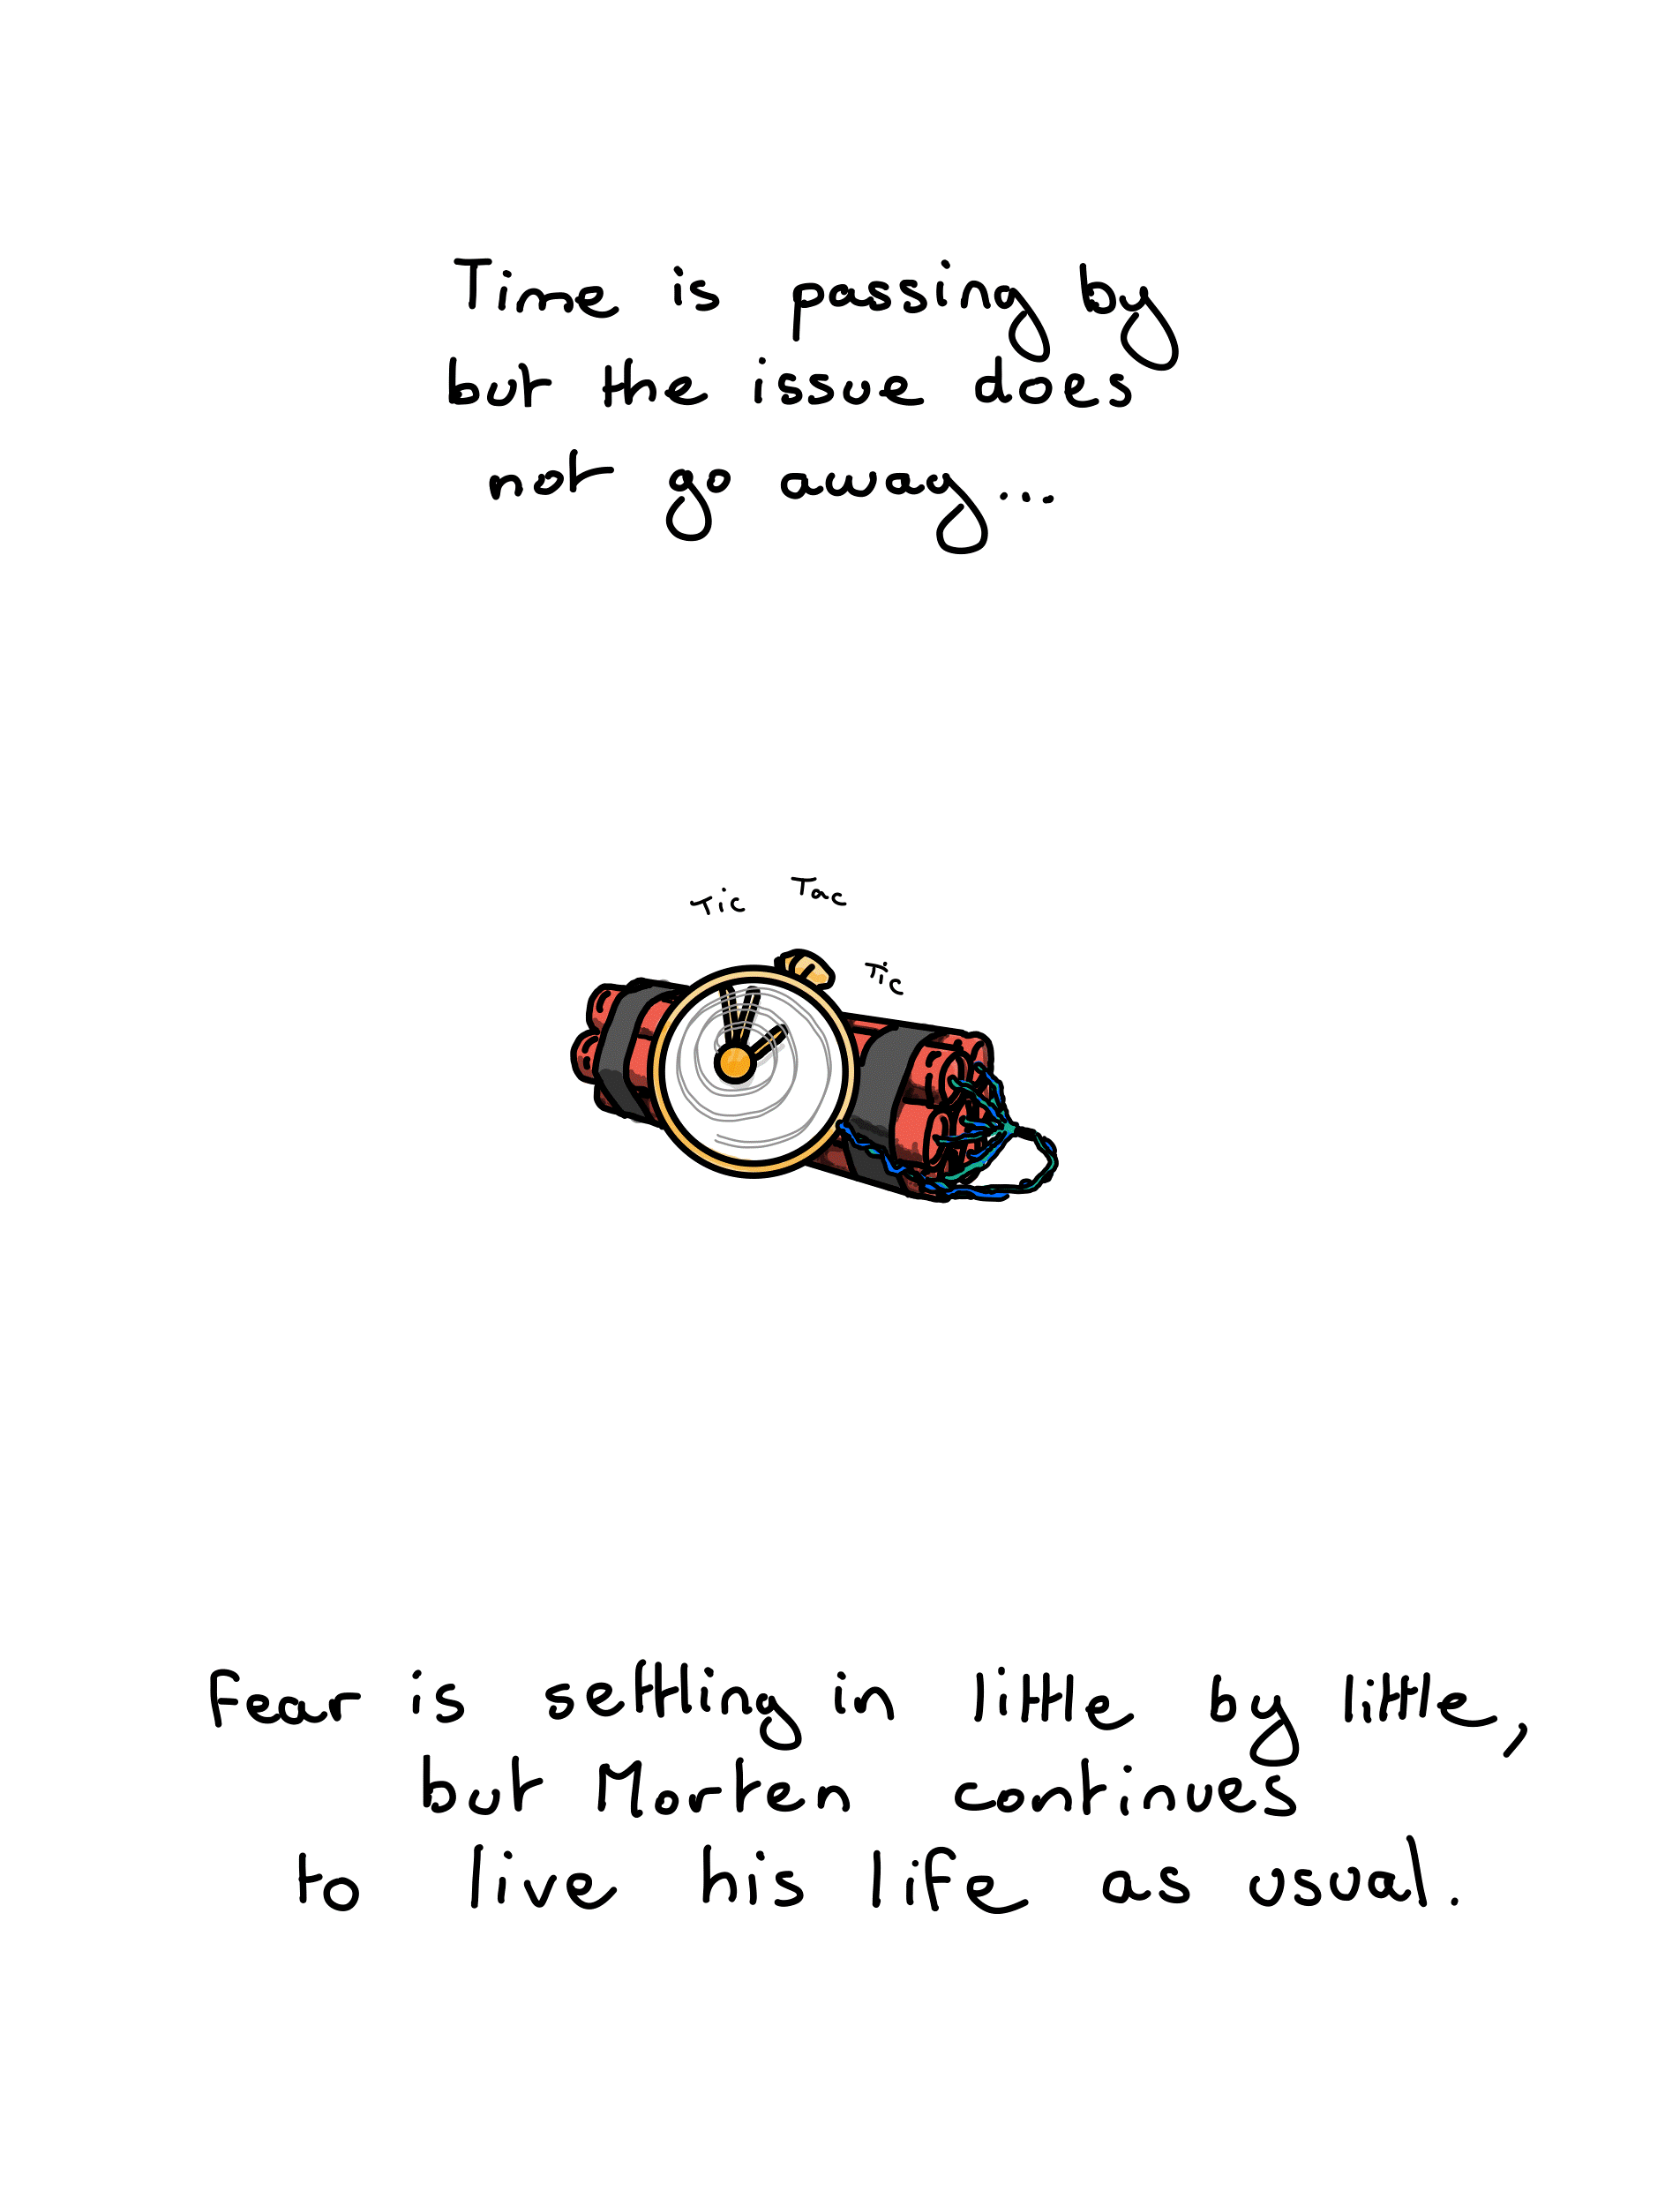 Time is passing by
but the issue does
not go away...
Tic Tac
Tic
Fear is settling in little by little,
but Morten continues
to live his life as usual.